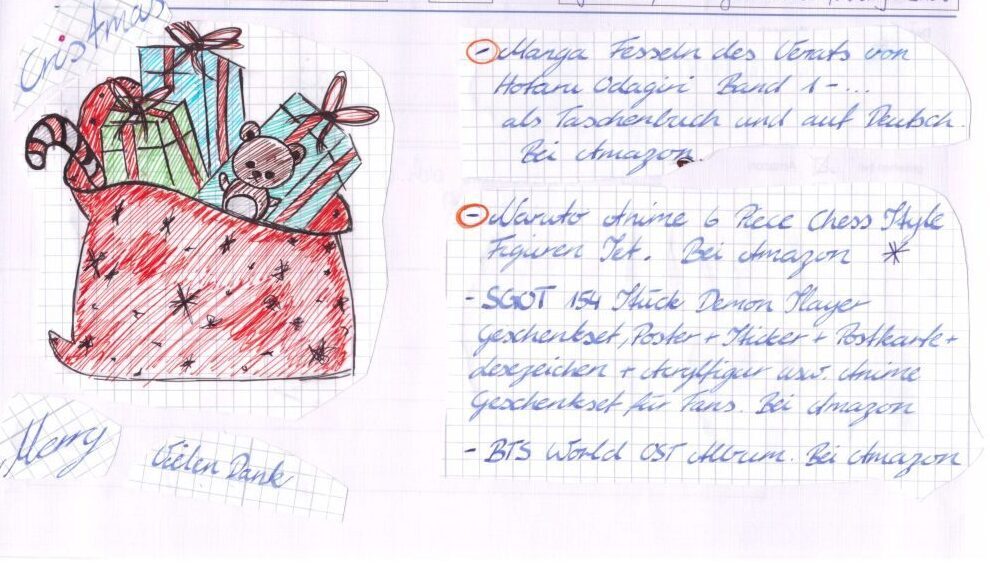 Cristmas
- Manga Fesseln des Verats von
Hotaru Odagiri Band 1 - ...
als Taschenbuch und auf Deutsch.
Bei Amazon.
- Naruto Anime 6 Piece Chess Style
Figuren Set. Bei Amazon *
- SGOT 154 Stück Demon Slayer
Geschenkset, Poster + Sticker + Postkarte +
Lesezeichen + Acrylfigur usw. Anime
Geschenkset für Fans. Bei Amazon
- BTS World OST Album. Bei Amazon
Merry
Vielen Dank